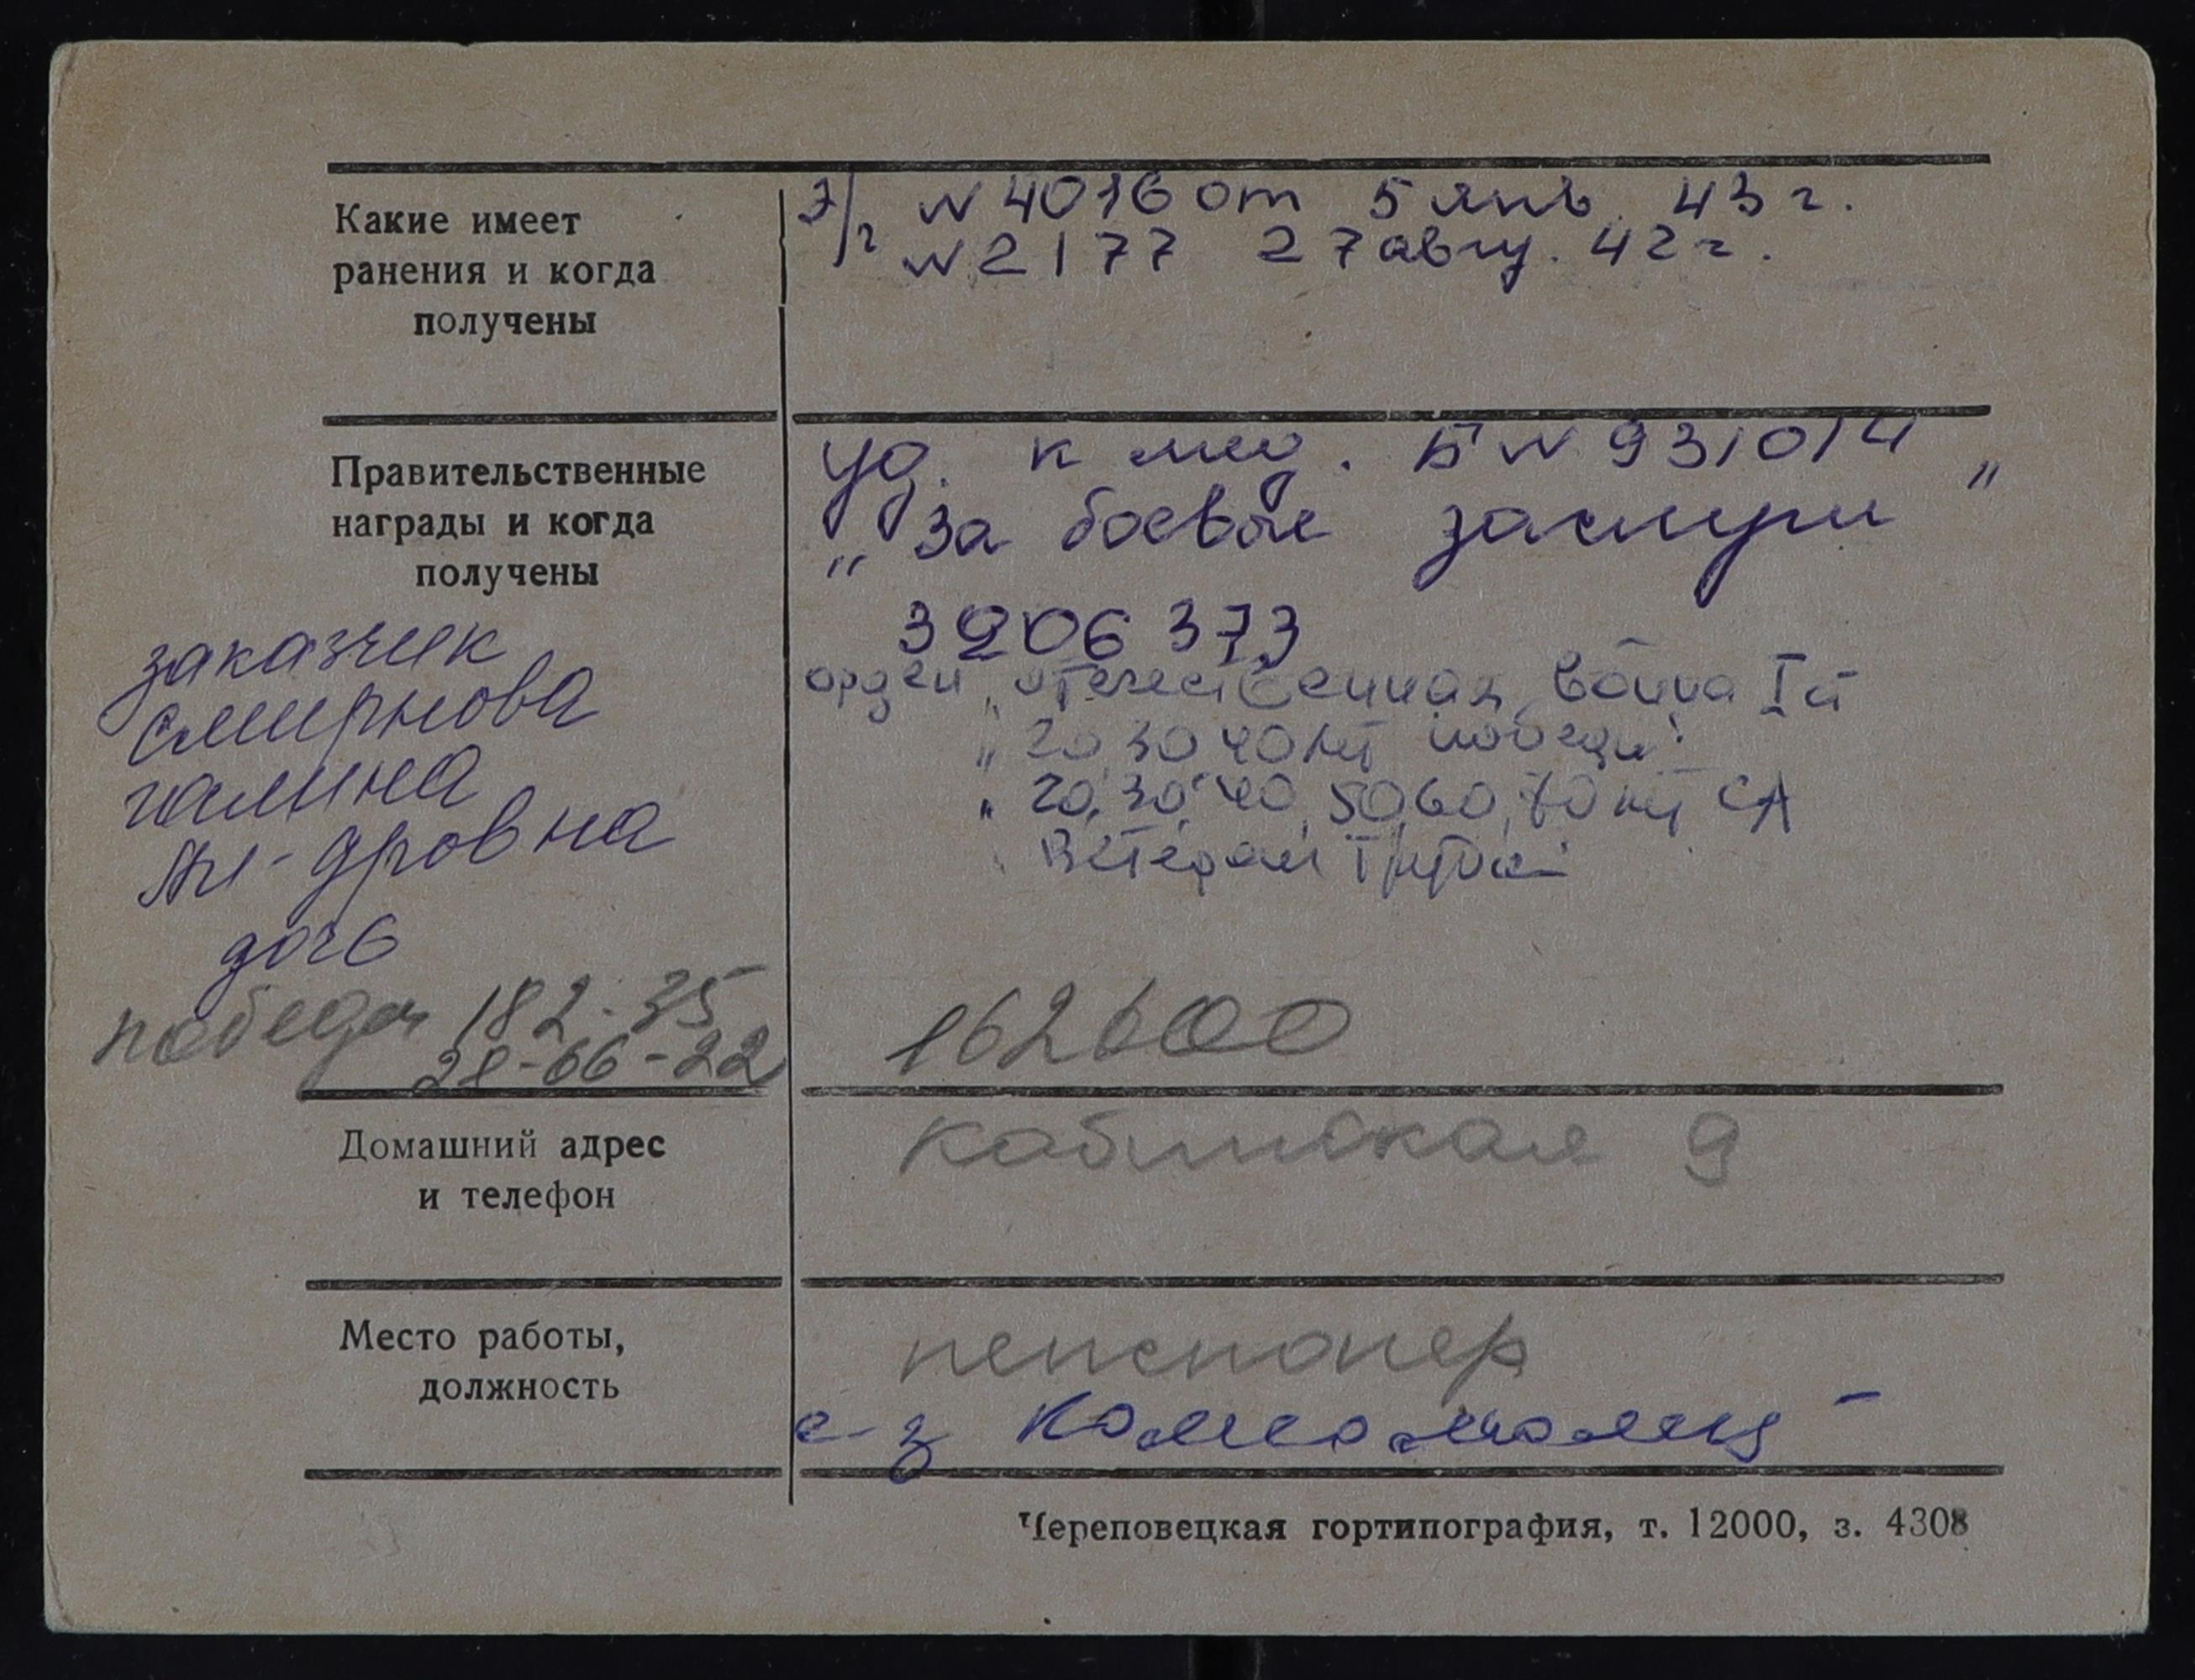 Какие имеет
ранения и когда
получены
Э/г N 4016 от 5 янв. 43 г.
N 2177 27 авгу. 42 г.
Правительственные
награды и когда
получены
уд. к мед. Б N 931014
„За боевые заслуги"
3206373
орден „отечественная война I ст
„20, 30 40 лет победы"
„20, 30, 40, 50, 60, 70 лет СА
Ветеран труда
заказчик
Смирнова
галина
Ал-дровна
дочь
победа 182-35
28-66-22
162600
Домашний адрес
и телефон
9
Место работы,
должность
пенсионер
с-з
Череповецкая гортипография, т. 12000, з. 4308